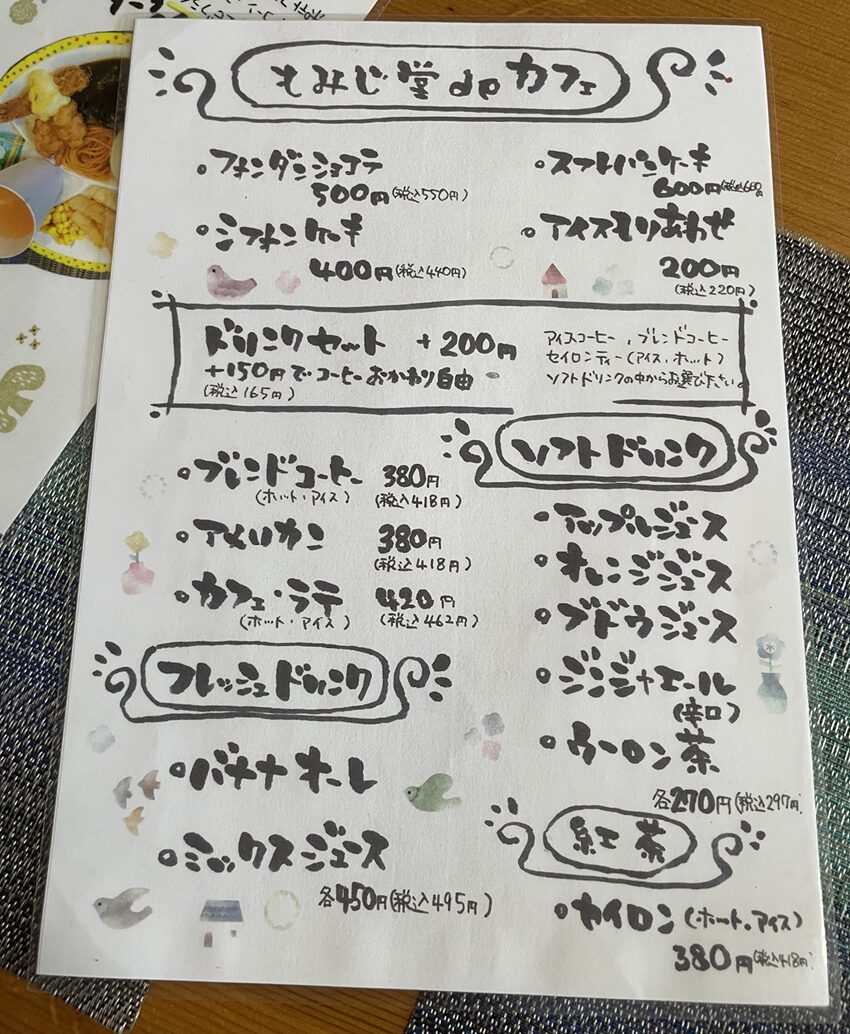 もみじ堂deカフェ
・フォンダンショコラ
500円(税込550円)
・シフォンケーキ
400円(税込440円)
・スフレパンケーキ
600円(税込660円
・アイスもりあわせ
200円
(税込220円)
ドリンクセット +200円
+150円でコーヒーおかわり自由
(税込165円)
アイスコーヒー、ブレンドコーヒー
セイロンティー(アイス、ホット)
ソフトドリンクの中からお選び下さい。
・ブレンドコーヒー 380円
(ホット・アイス) (税込418円)
・アメリカン 380円
(税込418円)
・カフェ・ラテ 420円
(ホット・アイス) (税込462円)
フレッシュドリンク
・バナナオーレ
・ミックスジュース
各450円(税込495円)
ソフトドリンク
・アップルジュース
・オレンジジュース
・ブドウジュース
・ジンジャエール
(辛口)
・ウーロン茶
各270円(税込297円)
紅茶
・セイロン(ホット・アイス)
380円(税込418円)